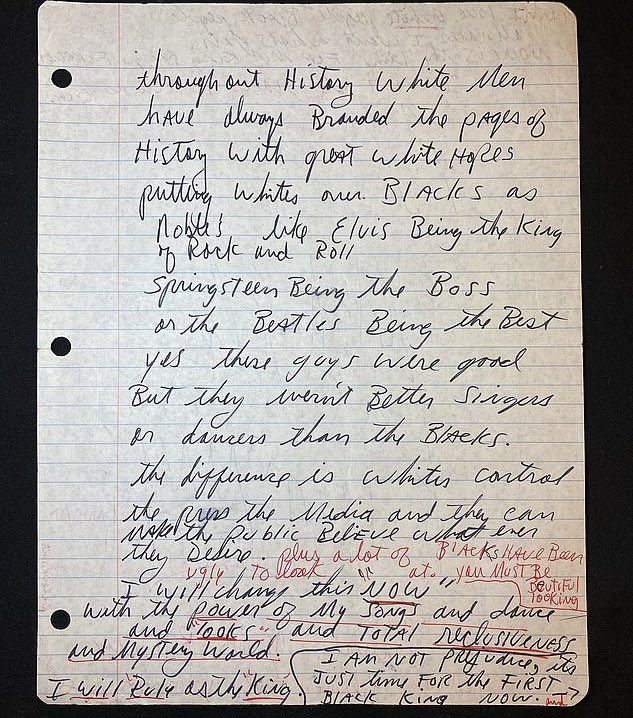 throughout History White Men
HAVE always Branded the pages of
History with great white Hopes
putting whites over BLACKS as
Nobles like Elvis Being the King
of Rock and Roll
Springsteen Being the Boss
or the Beatles Being the Best
yes these guys were good
But they weren't Better Singers
or dancers than the BLACKS.
the difference is whites control
the press the Media and they can
make the public Believe what ever
they Desire. plus a lot of BLACKS HAVE Been
ugly to look at. you MUST Be
Beutiful
looking
I will change this "NOW"
with the power of My Songs and dance
and "looks" and TOTAL reclusiveness
and Mystery World.
I will Rule as the King.
I AM NOT prejudice, its
JUST time FOR the FIRST
BLACK King NOW.